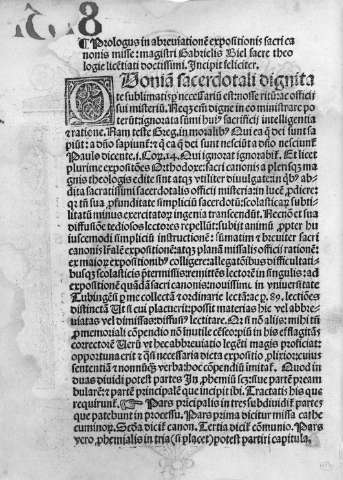 8
¶ Prologus in abreviationē expositionis sacri ca
nonis misse: magistri Gabrielis Biel sacre theo
logie licētiati doctissimi. Incipit feliciter.
Qoniā sacerdotali dignita
te sublimatis necessariū est: nosse ritū: ac officii
sui misteriū. Neqȝ em̄ digne in eo ministrare po
terūt: ignorata sūmi huiꝰ sacrificii intelligentia
et ratione. Nam teste Greg. in moralibꝰ Qui ea q̄ dei sunt sa
piūt: a dn̄o sapiunt: et qui ea q̄ dei sunt nesciūt a dn̄o nesciunt̄
Paulo dicente. i. Coꝝ. 14. Qui ignorat ignorabit̄. Et licet
plurime expositōes Orthodoxeꝝ: sacri canonis a plerisqȝ ma
gnis theologis edite sint atqȝ vtiliter diuulgate: in qibꝰ ab
dita sacratissimi sacerdotalis officii misteria: in lucē ꝓdiere:
qr tn̄ sua ꝓfunditate simpliciū sacerdotū: scolasticaꝝ subti
litatū minus exercitatoꝝ ingenia transcendūt. Necnō et sua
diffusiōe tediosos lectores repellūt: subijt animū ꝓpter hu
iuscemodi simpliciū instructionē: sūmatim et breuiter sacri
canonis lr̄alē expositionē: atqȝ planā missalis officii rationē:
ex maioꝝ expositionibꝰ colligere: allegatōibus difficultati
busqȝ scolasticis p̄termissis: remittēs lectorē in singulis: ad
expositionē quādā sacri canonis: nouissime in vniuersitate
Tubingēsi ꝑ me collectā et ordinarie lectā: ac ꝑ. 89. lectiōes
distinctā Ut si cui placuerit: possit materias hic vel abbre
uiatas vel dimissas: diffusiꝰ lectitare.
correctorē Uerū vt hec abbreuiatio legēti magis proficiat:
oportuna erit et necessaria dicta expositio ꝓlixior: cuius
sententiā et nonnūqȝ verba: hoc cōpendiū imitat̄. Quod in
duas diuidi potest partes In ꝓhemiū scȝ: siue partē pream
bularē: et partē principalē que incipit ibi. Tractatꝰ his que
requirunt̄. Pars pricipalis in tres subdiuidit̄ partes
que patebunt in processu. Pars prima dicitur missa cathe
cuminoꝝ. Scd̄a dicit̄ canon. Tertia dicit̄ cōmunio. Pars
vero ꝓhemialis in tria (si placet) potest partiri capitula.